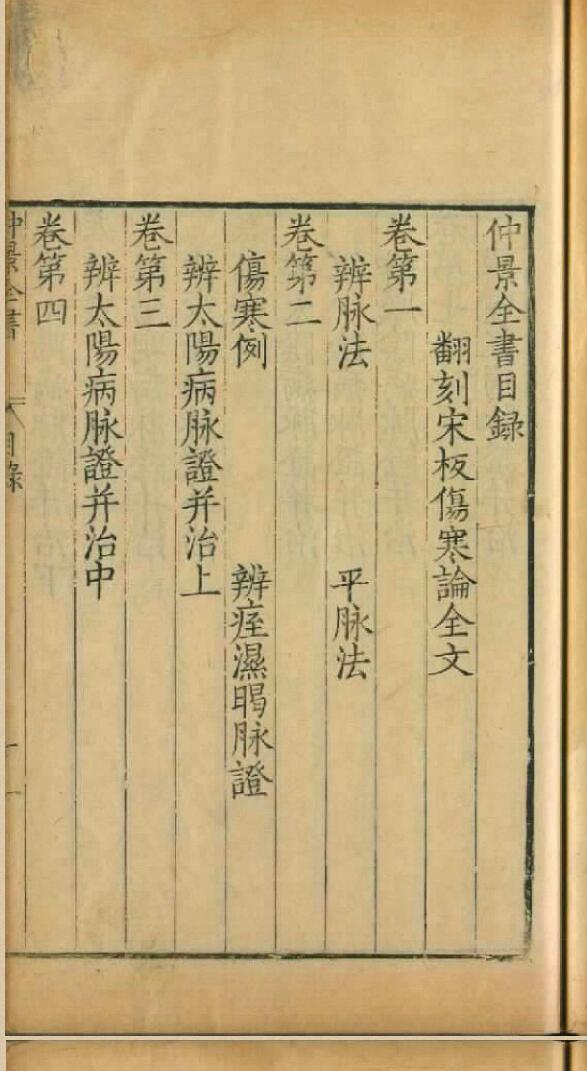 仲景全書目録
翻刻宋板傷寒論全文
卷第一
辨脉法 平脉法
卷第二
傷寒例 辨痓濕暍脉證
辨太陽病脉證并治上
卷第三
辨太陽病脉證并治中
卷第四
仲景全書 目錄